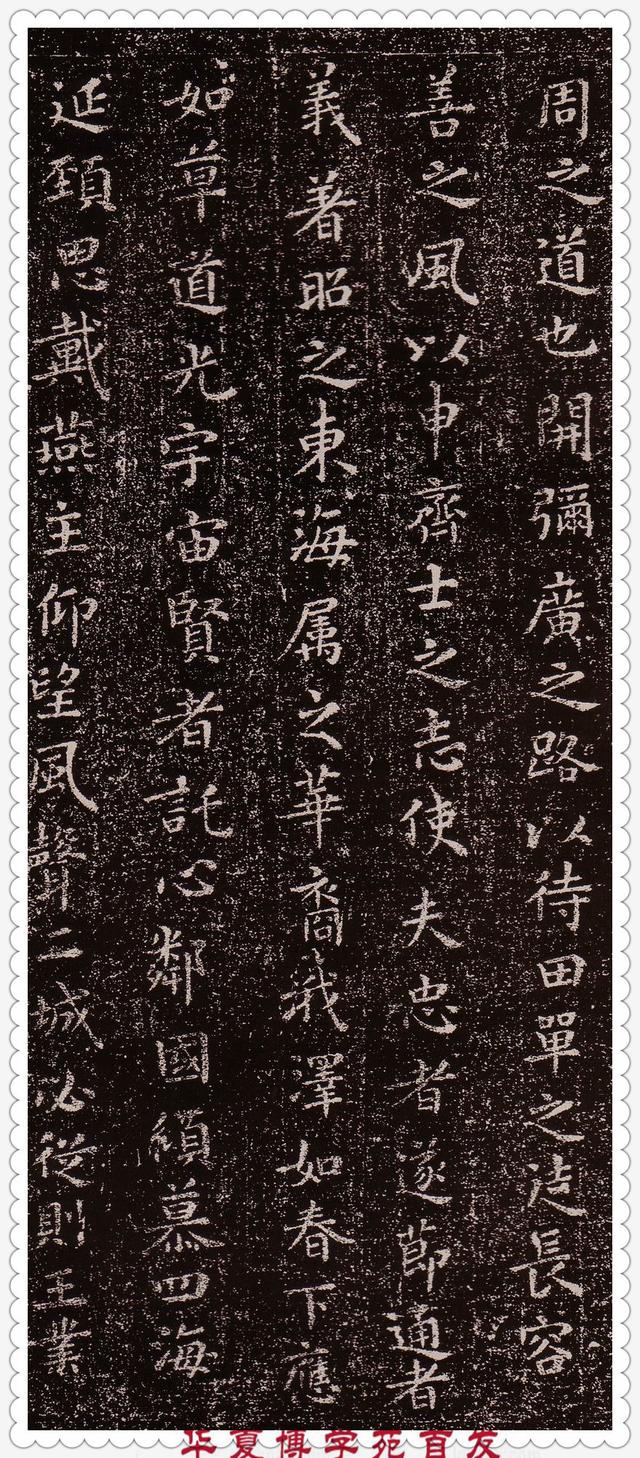 周之道也開彌廣之路以待田單之徒長容
善之風以申齊士之志使夫忠者遂節通者
義著昭之東海属之華裔我澤如春下應
如草道光宇宙賢者託心鄰國傾慕四海
延頸思戴燕主仰望風聲二城必從則王業
华夏博学苑首发